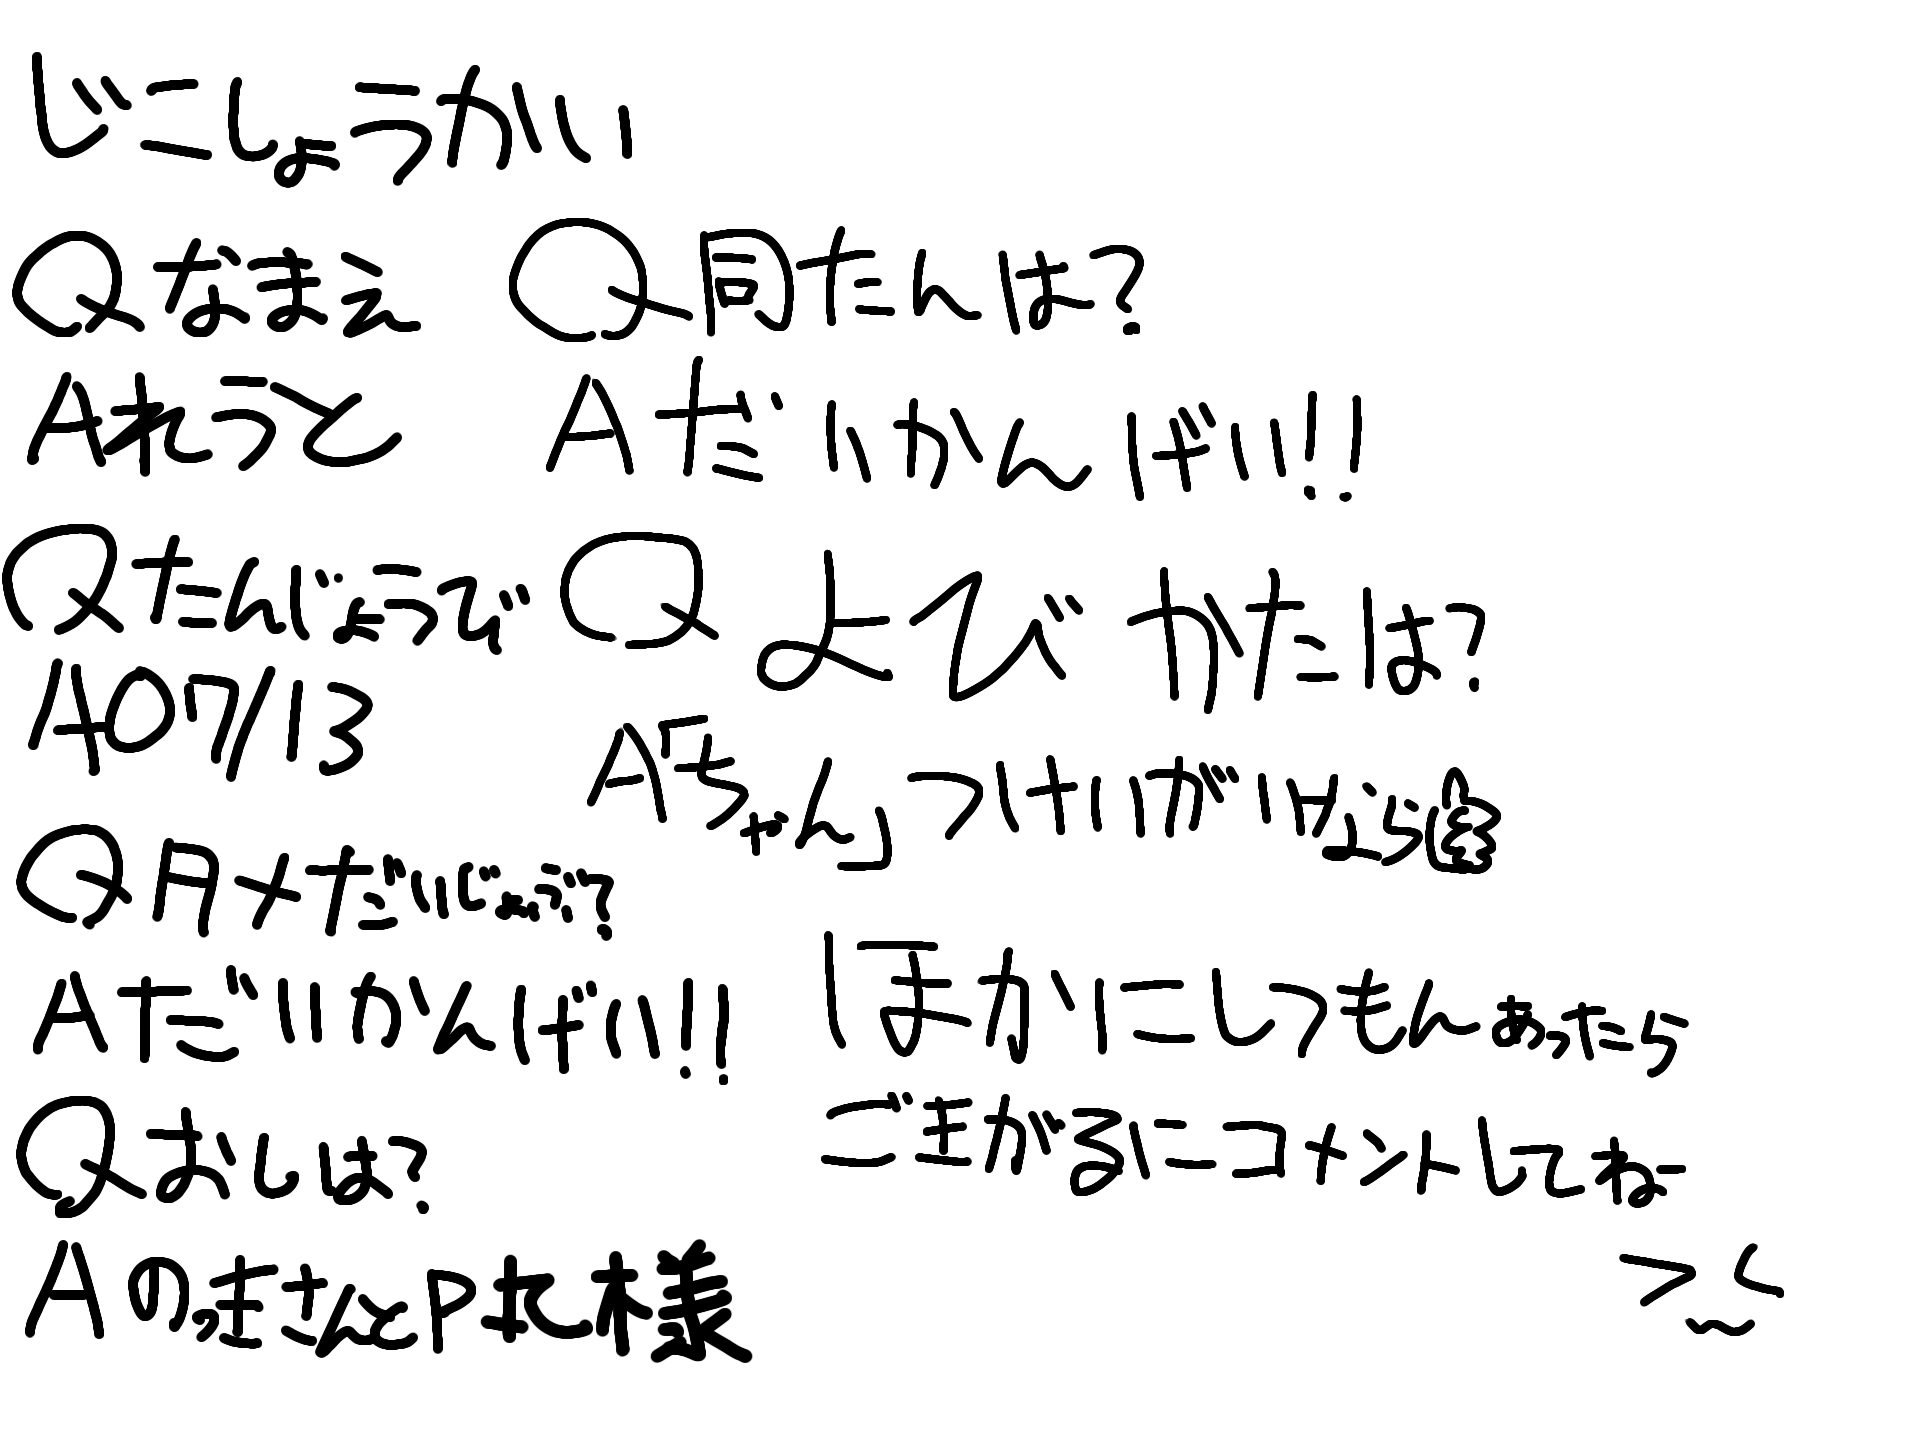 じこしょうかい
Qなまえ
Aれうと
Qたんじょうび
A07/13
Qタメだいじょぶ?
Aだいかんげい!!
Qおしは?
AのっきさんとP丸様
Q同たんは?
Aだいかんげい!!
Qよびかたは?
A「ちゃん」つけいがいなら👍
ほかにしつもんあったら
ごきがるにコメントしてね